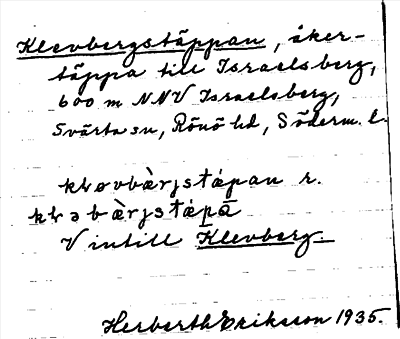 Klevbergstäppan, åker-
täppa till Israelsberg,
600 m NNV Israelsberg,
Svärta sn, Rönö hd, Söderm. l.
klɘvbæ̀rjstápan r.
klɘbæ̀rjstápa
V intill Klevberg.
Herberth Eriksson 1935.